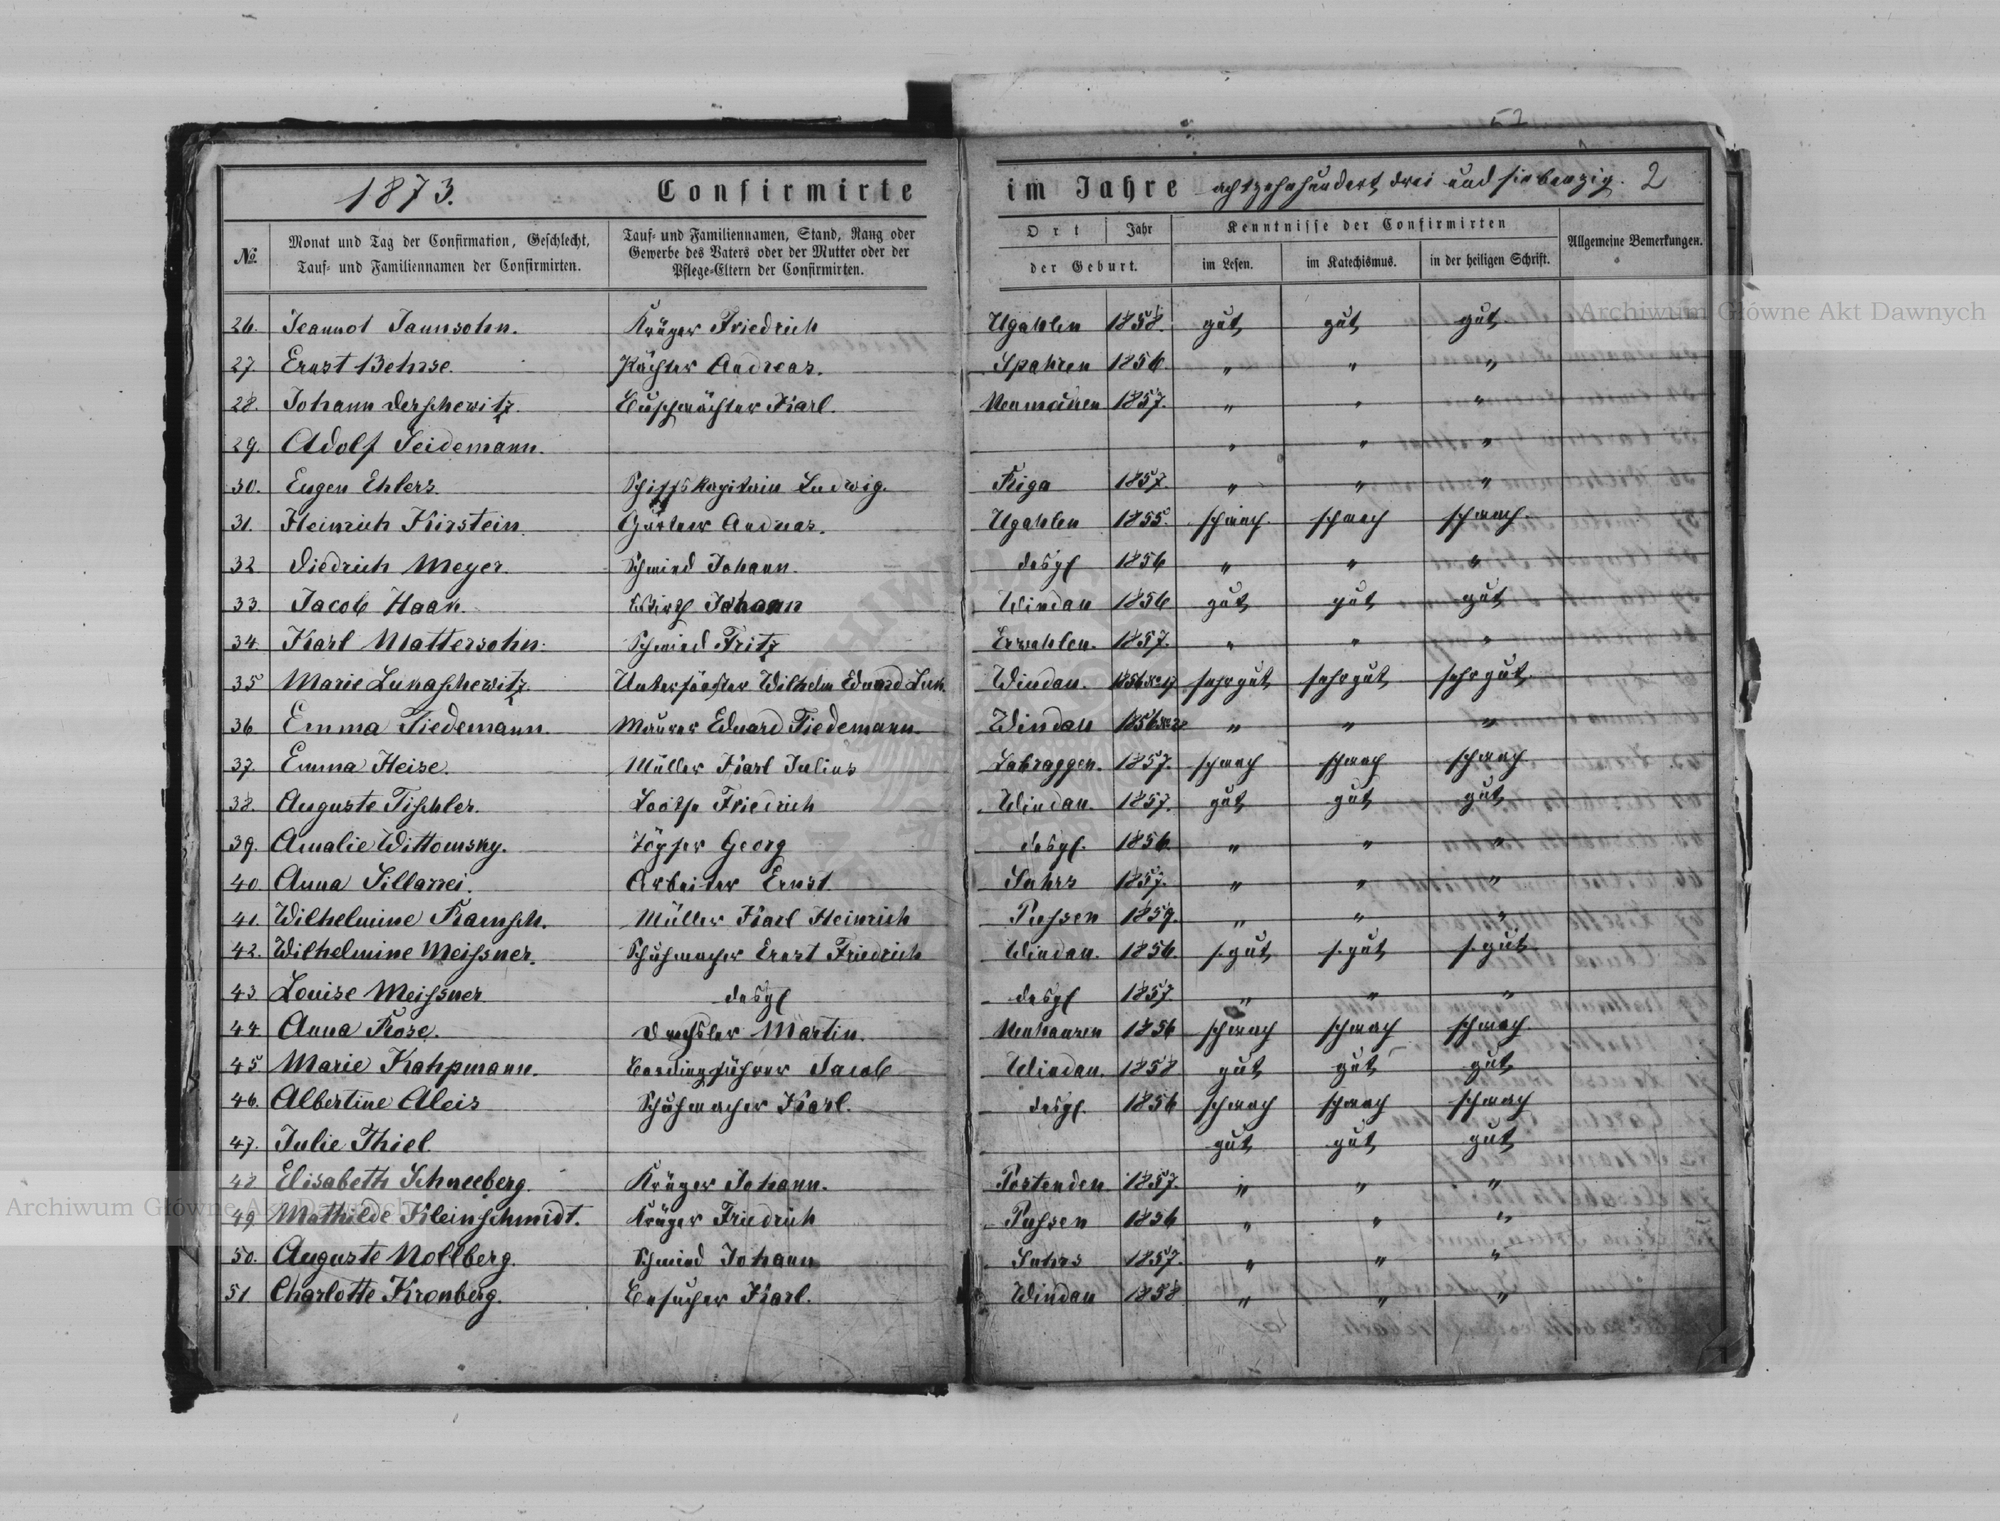 52
1873. Confirmirte im Jahre achtzehnhundert drei und siebenzig. 2
№ Monat und Tag der Confirmation, Geschlecht, Tauf- und Familiennamen der Confirmirten.
Tauf- und Familiennamen, Stand, Rang oder Gewerbe des Vaters oder der Mutter oder der Pflege-Eltern der Confirmirten.
Ort Jahr der Geburt.
Kenntnisse der Confirmirten
im Lesen. im Katechismus. in der heiligen Schrift.
Allgemeine Bemerkungen.
26. Jeannot Jaunsohn. Krüger Friedrich Ugahlen 1858. gut gut gut
27. Ernst Behrse. Andreas. Spahren 1856. " " "
28. Johann Derschewitz. Buschwächter Karl. 1857. " " "
29. Adolf Seidemann. " " "
30. Eugen Ehlers. Schiffskapitain Ludwig. Riga 1857. " " "
31. Heinrich Kirstein. Gärtner Andreas. Ugahlen 1855. schwach schwach schwach.
32. Diedrich Meyer. Schmied Johann. desgl 1856 " " "
33. Jacob Haan. Wirth Johann Windau 1856 gut gut gut
34. Karl Mattersohn. Schmied Fritz Erwahlen. 1857. " " "
35 Marie Lukaschewitz. Unterförster Wilhelm Eduard Luk. Windau. 1856 sehr gut sehr gut sehr gut.
36 Emma Tiedemann. Maurer Eduard Tiedemann. Windau 1856 " " "
37. Emma Heise. Müller Karl Julius Labraggen. 1857. schwach schwach schwach
38. Auguste Tischler. Lootse Friedrich Windau. 1857. gut gut gut
39. Amalie Wittomsky. Töpfer Georg desgl. 1856. " " "
40 Anna Sillarrei. Arbeiter Ernst. Suhrs 1857. " " "
41. Wilhelmine Ramsch. Müller Karl Heinrich Puhsen 1859. " " "
42. Wilhelmine Meissner. Schuhmacher Ernst Friedrich Windau. 1856. s. gut s. gut s. gut
43 Louise Meissner desgl desgl 1857. " " "
44. Anna Rose. Drechsler Martin. 1856 schwach schwach schwach.
45 Marie Kahpmann. Bordingsführer Jacob Windau. 1858 gut gut gut
46. Albertine Aleis Schuhmacher Karl. desgl. 1856 schwach schwach schwach
47. Julie Thiel. gut gut gut
48 Elisabeth Schneeberg. Krüger Johann. Postenden. 1857. " " "
49 Mathilde Kleinschmidt. Krüger Friedrich Puhsen 1856 " " "
50. Auguste Nollberg. Schmied Johann Suhrs 1857. " " "
51 Charlotte Kronberg. Besucher Karl. Windau 1858 " " "
Archiwum Główne Akt Dawnych
Archiwum Główne Akt Dawnych